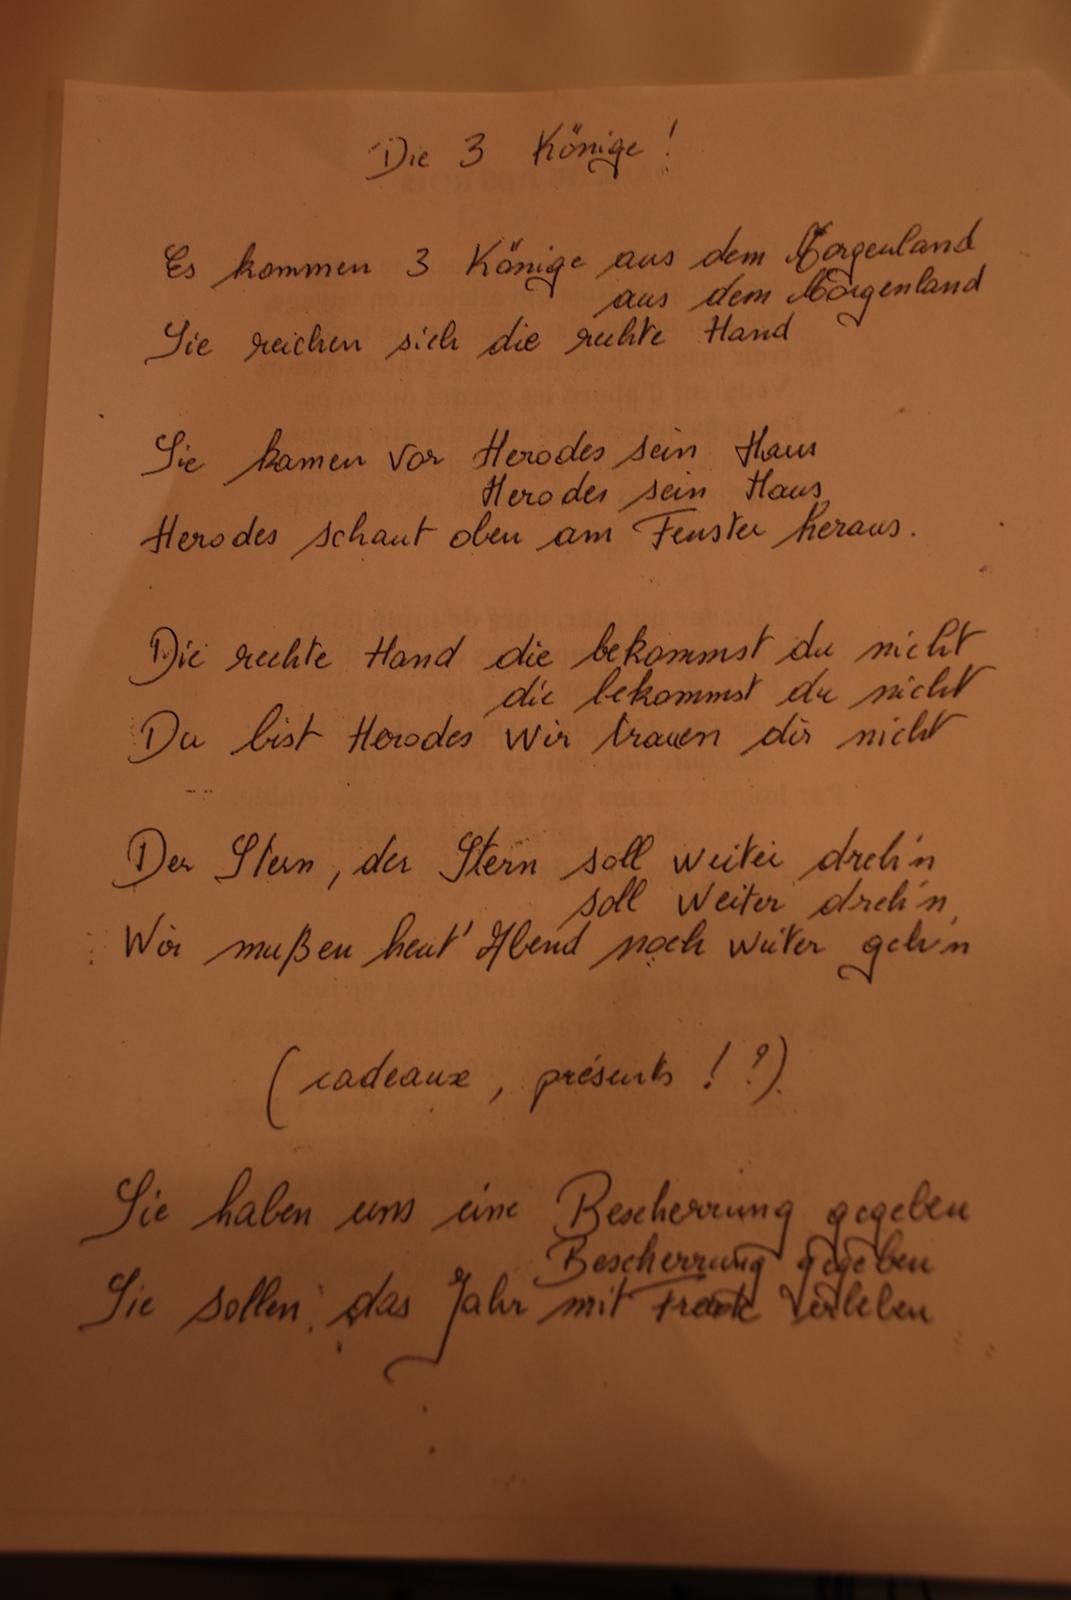 Die 3 Könige !
Es kommen 3 Könige aus dem Morgenland
aus dem Morgenland
Sie reichen sich die rechte Hand
Sie kamen vor Herodes sein Haus
Herodes sein Haus,
Herodes schaut oben am Fenster heraus.
Die rechte Hand die bekommst du nicht
die bekommst du nicht
Du bist Herodes wir trauen dir nicht
Der Stern, der Stern soll weiter dreh'n
soll weiter dreh'n,
Wir mußen heut' Abend noch weiter geh'n
(cadeaux, présents ! ?)
Sie haben uns eine Bescherrung gegeben
Bescherrung gegeben
Sie sollen das Jahr mit erleben